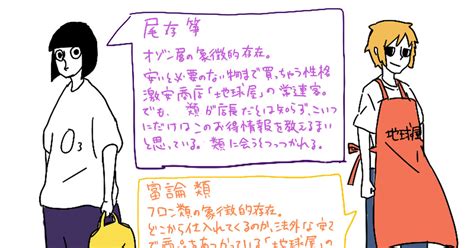 尾存筝
オゾン層の象徴的存在。
安いと必要のない物まで買っちゃう性格
激安商店「地球屋」の常連客。
でも、類が店長だとは知らず、こいつ
にだけはこのお得情報を教えるまい
と思っている。類に会うとつっつかれる。
O3
地球屋
富論類
フロン類の象徴的存在。
どこから仕入れてくるのか、法外な安さ
で商品をあつかっている「地球屋」の